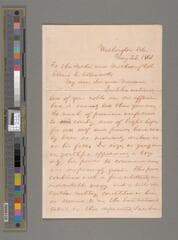 Washington D.C.
May 25. 1861
To the Father and Mother of Col.
Elmer E. Ellsworth:
My dear Sir and Madam,
In the untimely
loss of your noble son, our affliction
here, is scarcely less than your own.
So much of promised usefulness to
one's country, and of bright hopes
for one's self and friends, have rarely
been so suddenly dashed, as
in his fall. In size, in years, and
in youthful appearance, a boy
only, his power to command men,
was surpassingly great. This power,
combined with a fine intellect, an
indomitable energy, and a taste al-
together military, constituted in him,
as seemed to me, the best natural
talent, in that department, I ever knew.